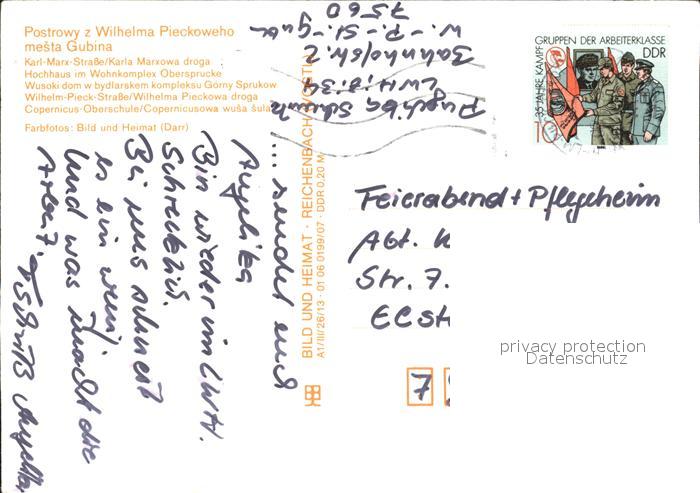 Postrowy z Wilhelma Pieckoweho
mešta Gubina
Karl-Marx-Straße/Karla Marxowa droga
Hochhaus im Wohnkomplex Obersprucke
Wusoki dom w bydlarskem kompleksu Górny Sprukow
Wilhelm-Pieck-Straße/Wilhelma Pieckowa droga
Copernicus-Oberschule/Copernicusowa wuša šula
Farbfotos: Bild und Heimat (Darr)
BILD UND HEIMAT · REICHENBACH
A1/III/26/13 · 01 06 0199/07 · DDR 0,20 M
35 JAHRE KAMPFGRUPPEN DER ARBEITERKLASSE
DDR
10
LWH, 8:34
Bahnhofstr. 2
W.-P.-St.-Guben
7560
... sendet euch
Angelika
Bin wieder im LWH.
Schrecklich.
Bei uns schneit
es ein wenig
Und was macht die
Arbeit.
Angelika
Feierabend + Pflegeheim
Abt. K
Str. 7.
7
privacy protection
Datenschutz